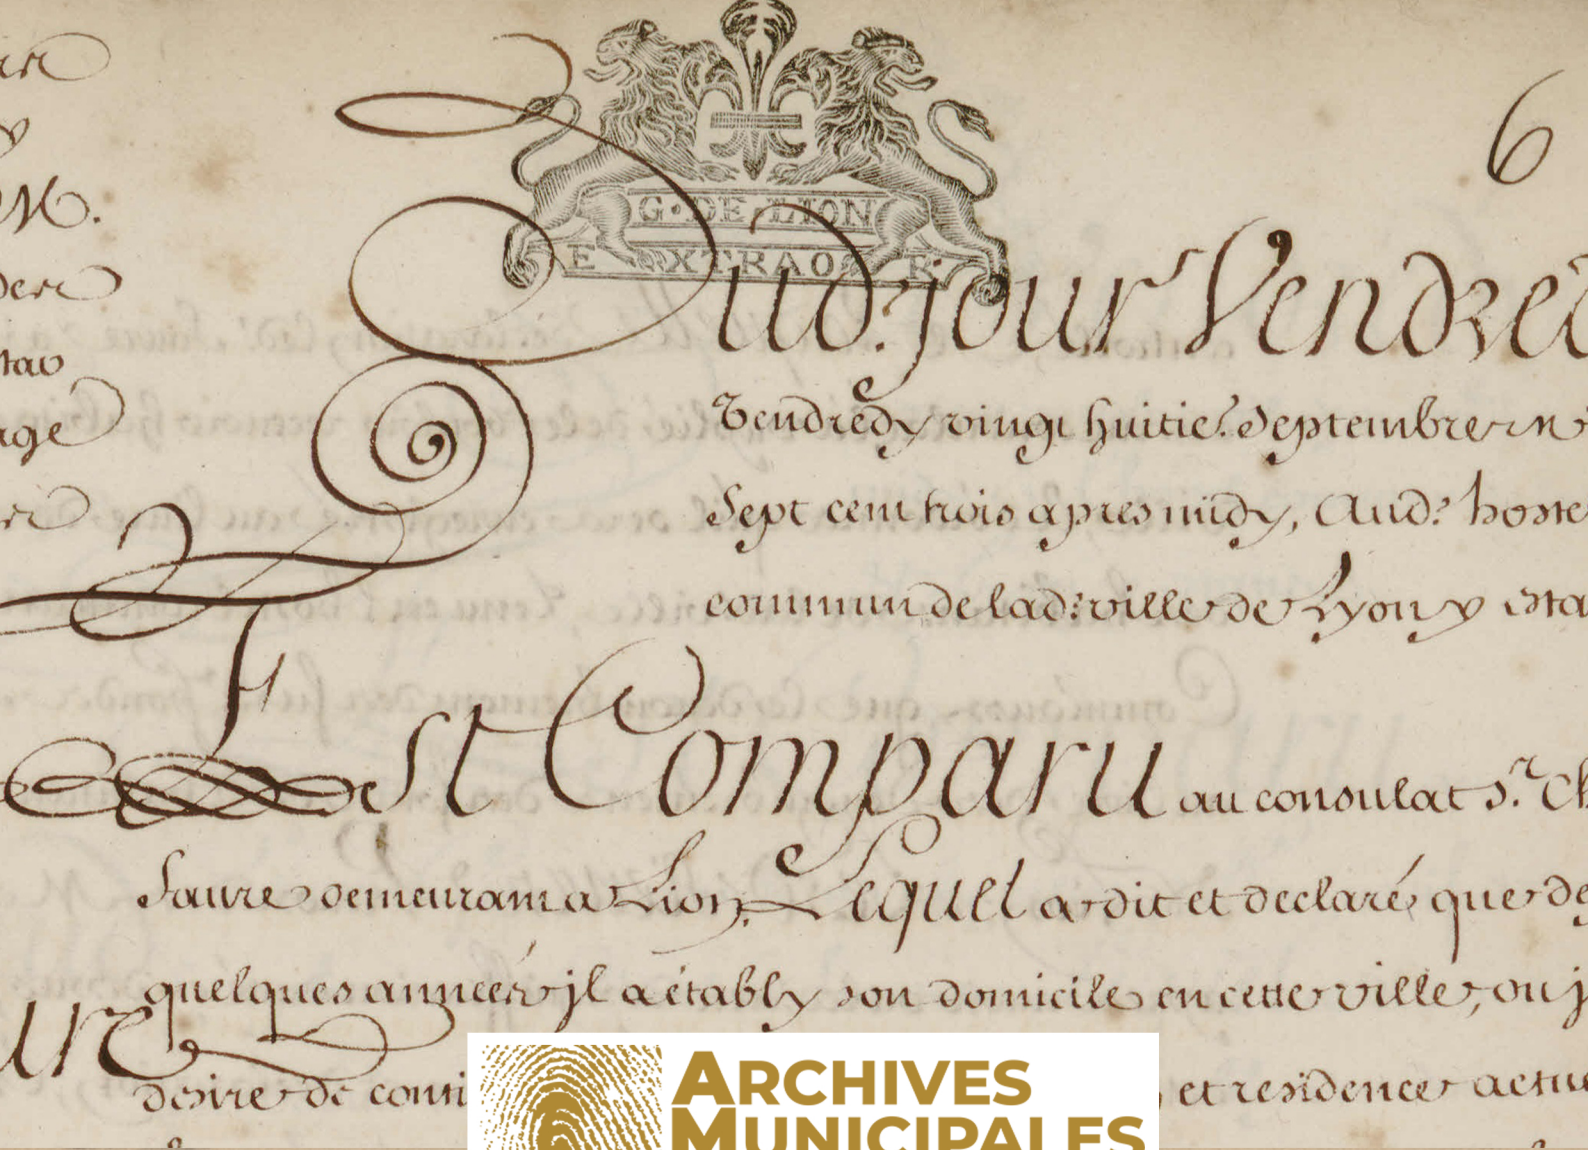 6
G·DE·LION
EXTRAOR
Dud. jour Vendred
Vendredy vingt huitie.^e Septembre m
Sept cent trois apres midy, Aud.^t hostel
commun de lad: ville de Lyon y esta
Est Comparu au consulat s.^r Ch
faure demeurant a Lion, Lequel a dit et declaré, que de
quelques années jl a étably son domicile en cette ville, ou j
desire de conti
et residence actue
ure
der
age
ARCHIVES
MUNICIPALES